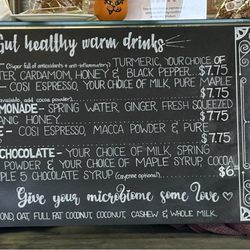 Gut healthy warm drinks
(Super full of antioxidants + anti-inflammatory) TURMERIC, YOUR CHOICE OF
TER, CARDAMOM, HONEY & BLACK PEPPER. $7.75
- COSI ESPRESSO, YOUR CHOICE OF MILK, PURE MAPLE
available, add cocoa powder) $7.75
MONADE - SPRING WATER, GINGER, FRESH SQUEEZED
ANIC HONEY. $7.75
E - COSI ESPRESSO, MACCA POWDER & PURE
$7.75
CHOCOLATE - YOUR CHOICE OF MILK, SPRING
POWDER & YOUR CHOICE OF MAPLE SYRUP, COCOA
PLE 5 CHOCOLATE SYRUP (cayenne optional) $6
Give your microbiome some love
OND, OAT, FULL FAT COCONUT, COCONUT, CASHEW & WHOLE MILK.